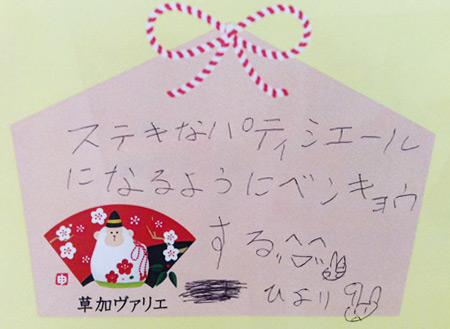 ステキなパティシエール
になるようにベンキョウ
する!!
ひより
申
草加ヴァリエ